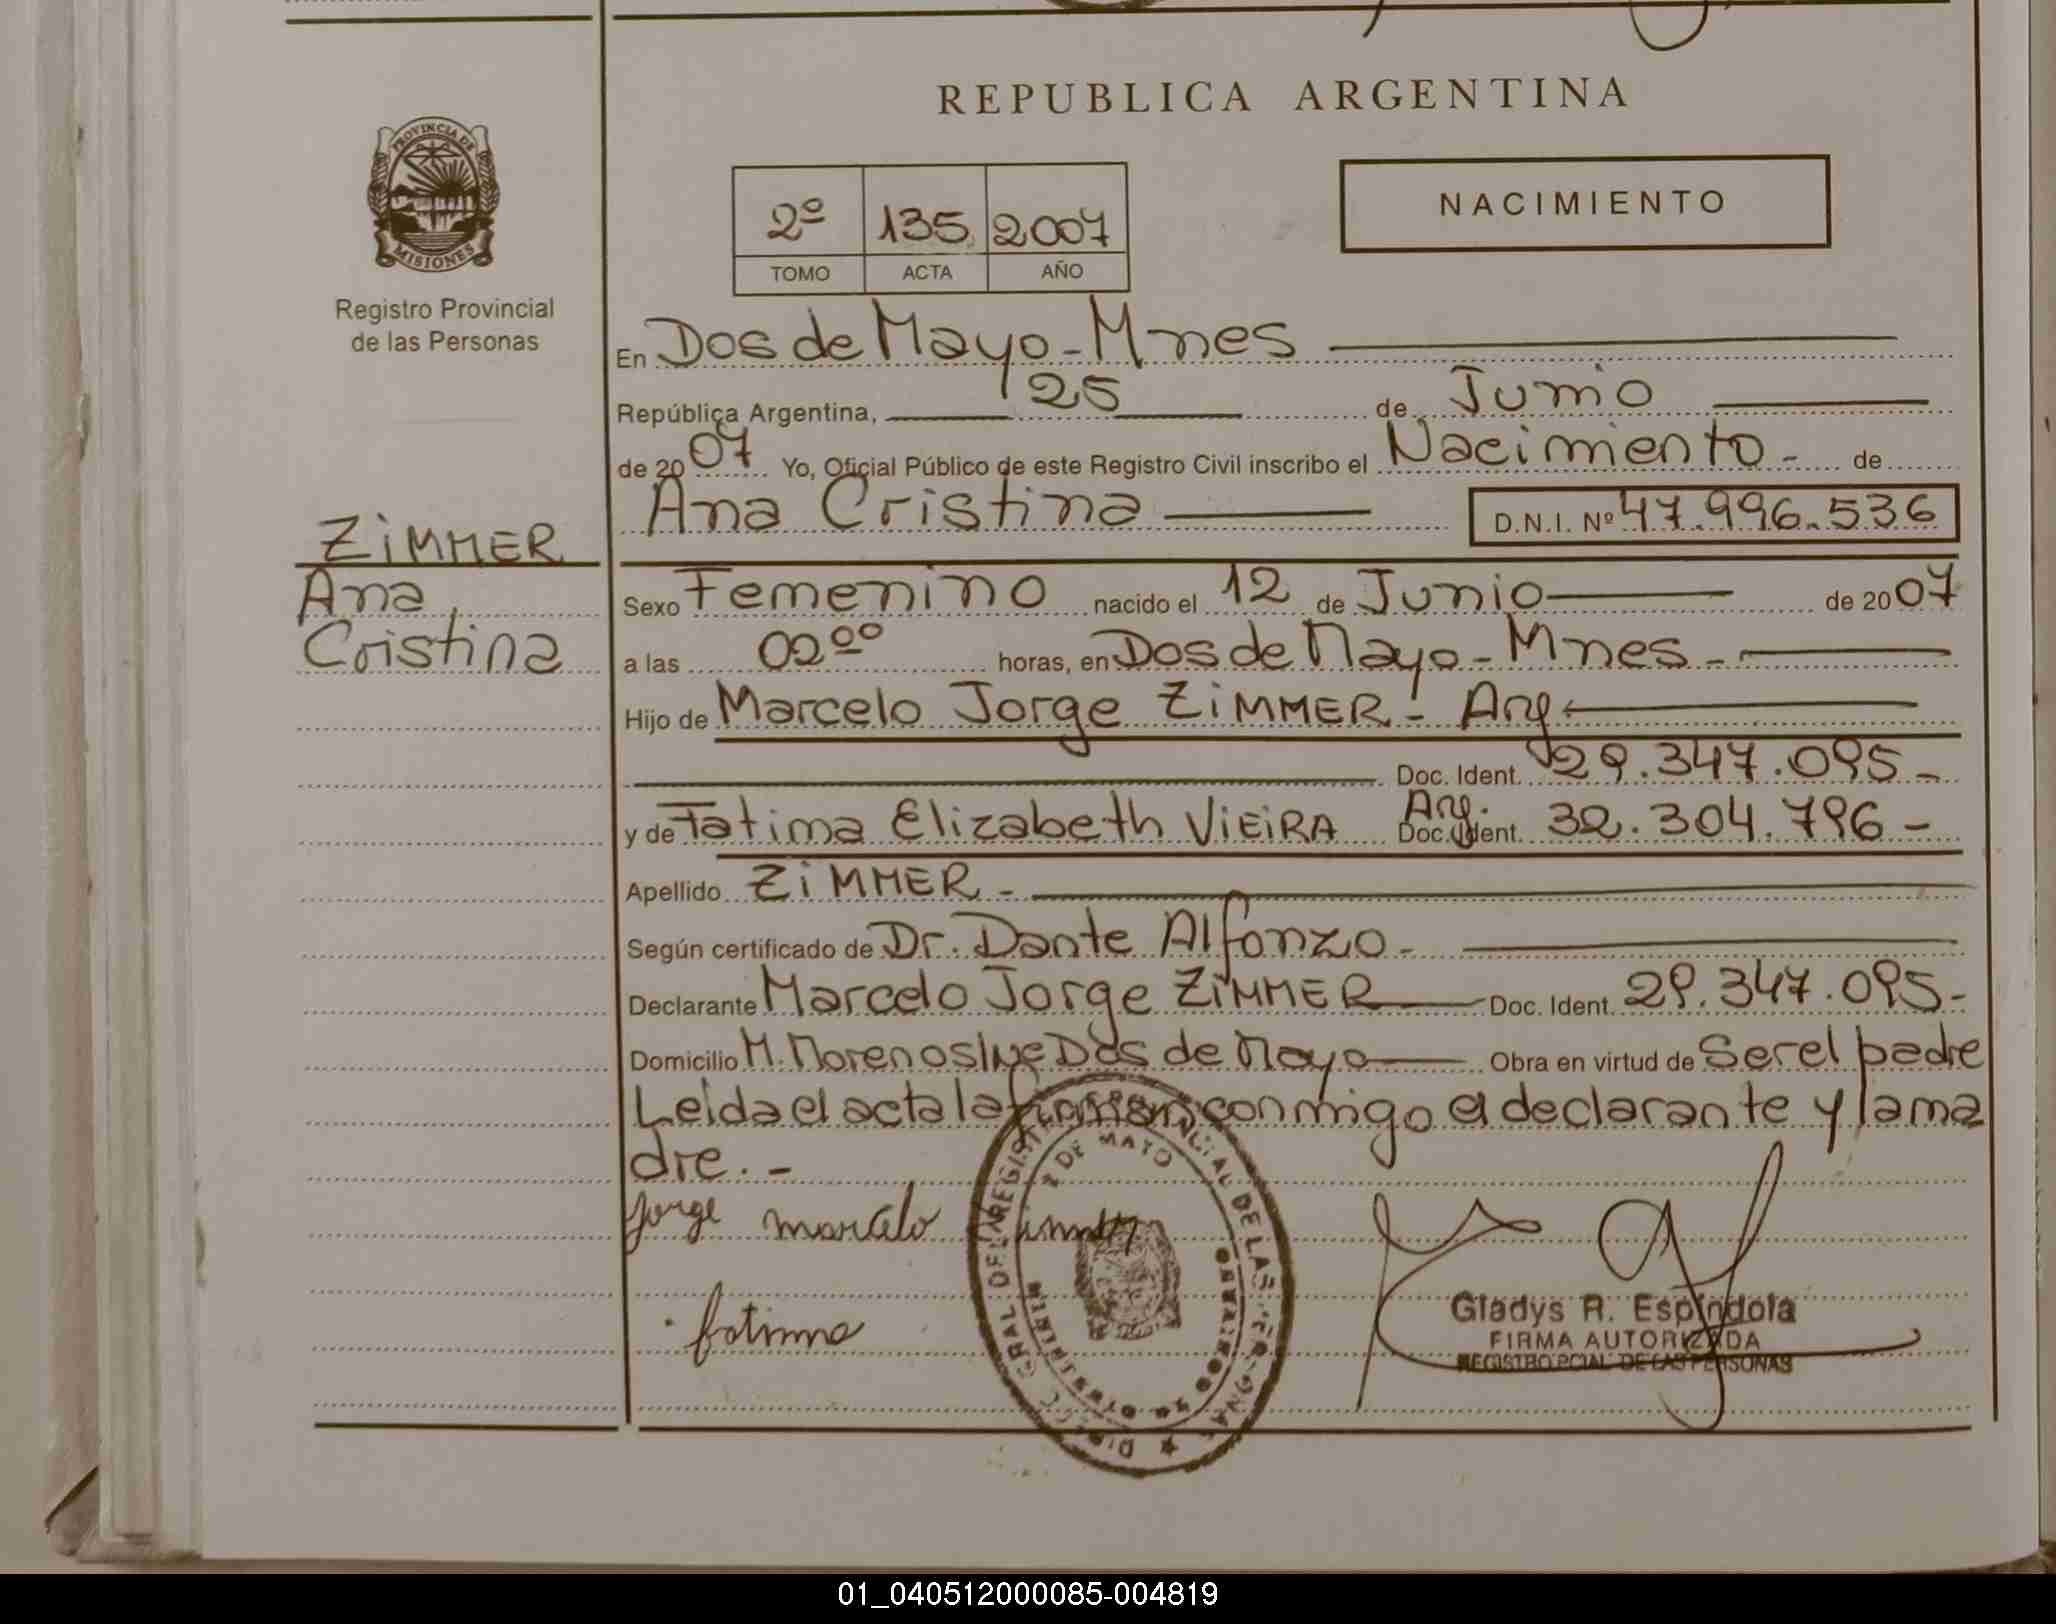 REPUBLICA ARGENTINA
PROVINCIA DE
MISIONES
Registro Provincial
de las Personas
NACIMIENTO
2º 135 2007
TOMO ACTA AÑO
En Dos de Mayo - Mnes
República Argentina, 25 de Junio
de 2007 Yo, Oficial Público de este Registro Civil inscribo el Nacimiento - de
Ana Cristina D.N.I. Nº 47.996.536
ZiMMER
Ana
Cristina
Sexo Femenino nacido el 12 de Junio de 2007
a las 02ºº horas, en Dos de Mayo - Mnes -
Hijo de Marcelo Jorge ZiMMER - Arg
Doc. Ident. 29.347.095 -
y de Fatima Elizabeth ViEiRA Arg. Doc. Ident. 32.304.796 -
Apellido ZiMMER -
Según certificado de Dr. Dante Alfonzo -
Declarante Marcelo Jorge ZiMMER Doc. Ident. 29.347.095 -
Domicilio M. Moreno s/n de Dos de Mayo Obra en virtud de Ser el padre
Leida el acta la firman conmigo el declarante y la ma
dre. -
Jorge marcelo Zimmer
fatima
2 DE MAYO
Gladys R. Espíndola
FIRMA AUTORIZADA
REGISTRO PCIAL. DE LAS PERSONAS
01_040512000085-004819